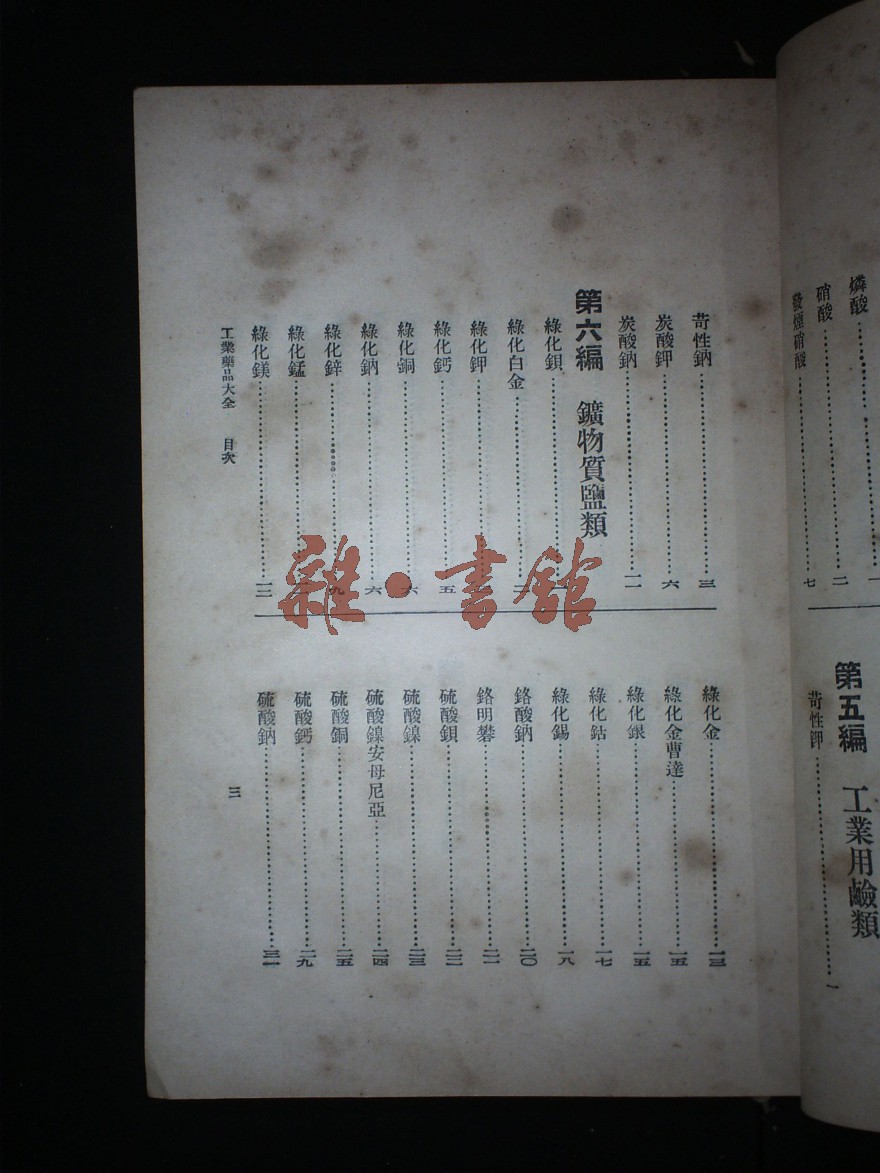 燐酸 一
硝酸 二
發煙硝酸 七
第五編 工業用鹼類
苛性鉀 一
苛性鈉 三
炭酸鉀 六
炭酸鈉 一一
第六編 鑛物質鹽類
綠化鋇
綠化白金 二
綠化鉀
綠化鈣 五
綠化銅 六
綠化鈉 六
綠化鋅 九
綠化錳
綠化鎂 一二
綠化金 一三
綠化金曹達 一五
綠化銀 一五
綠化鈷 一七
綠化錫 一八
鉻酸鈉 二〇
鉻明礬 二一
硫酸鋇 二二
硫酸鎳 二三
硫酸鎳安母尼亞 二四
硫酸銅 二五
硫酸鈣 二九
硫酸鈉 三一
工業藥品大全 目次
三
雜·書館